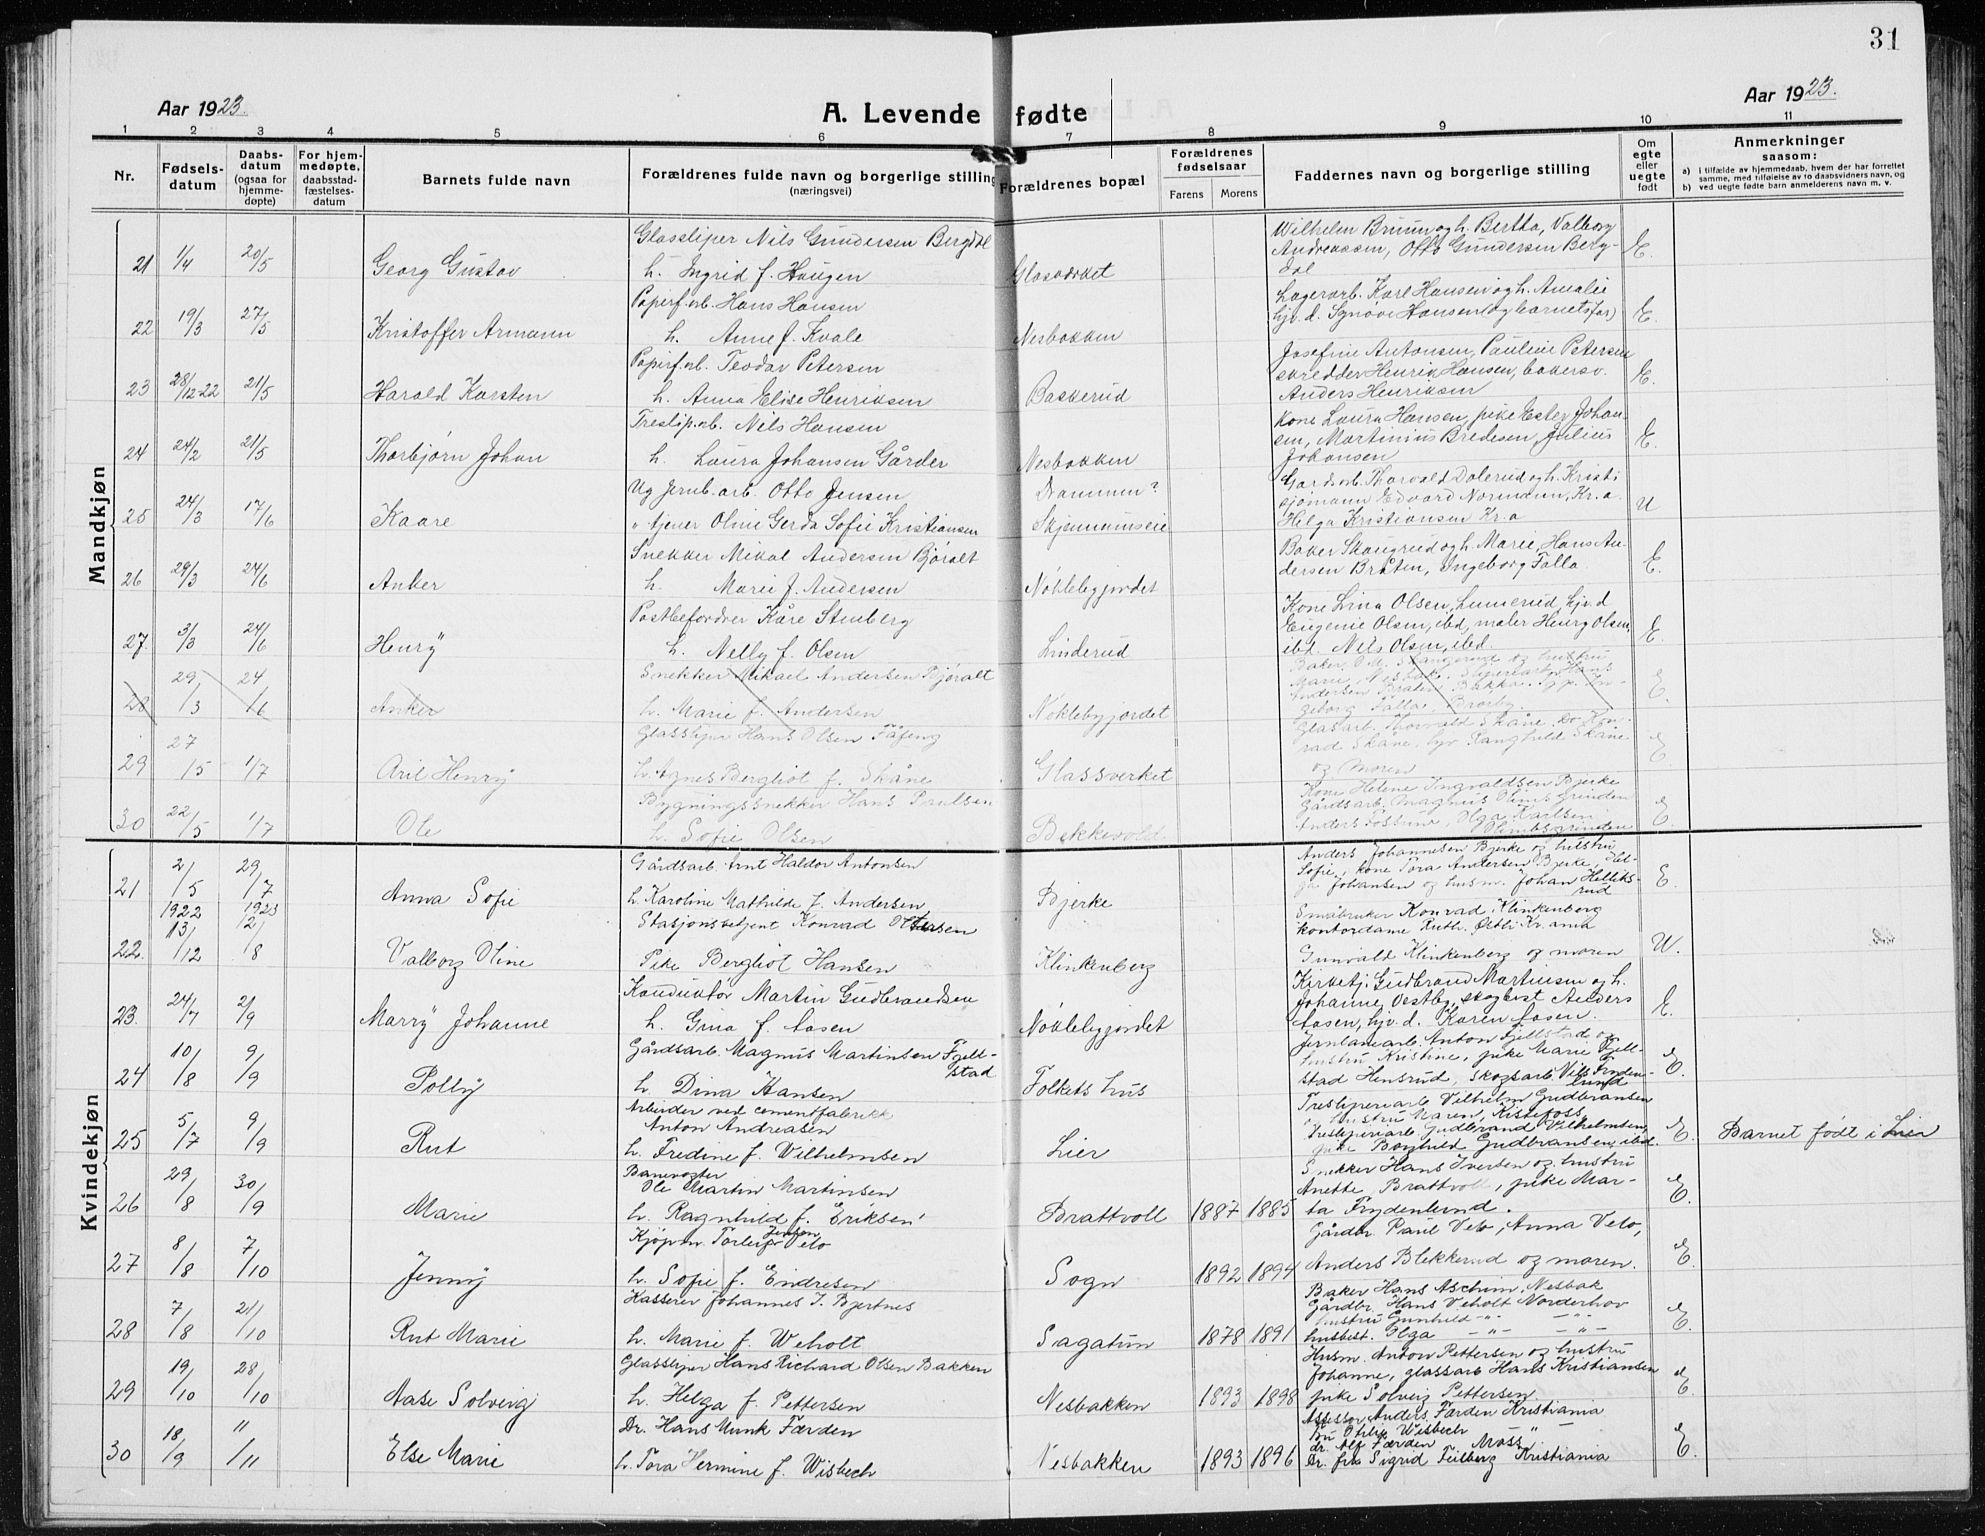 31
Aar 1923.
A. Levende fødte
Aar 1923.
1 2 3 4 5 6 7 8 9 10 11
Nr.
Fødsels-
datum
Daabs-
datum
(ogsaa for
hjemme-
døpte)
For hjem-
medøpte,
daabsstad-
fæstelses-
datum
Barnets fulde navn
Forældrenes fulde navn og borgerlige stilling
(næringsvei)
Forældrenes bopæl
Forældrenes
fødselsaar
Farens Morens
Faddernes navn og borgerlige stilling
Om
egte
eller
uegte
født
Anmerkninger
saasom:
a) i tilfælde av hjemmedaab, hvem der har forrettet
samme, med tilføielse av to daabsvidners navn, og
b) ved uegte fødte barn anmelderens navn m. v.
Mandkjøn
21 1/4 20/5 Georg Gustav
Glassliper Nils Gundersen Bergdal
h. Ingrid f. Haugen
Glasværket
Wilhelm Bruun og h. Bertha, Valborg
Andreassen, Otto Gundersen Berg-
dal
E.
22 19/3 27/5 Kristoffer Armann
Papirf.arb. Hans Hansen
h. Anne f. Kvale
Nesbakken
Lagerarb. Karl Hansen og h. Amalie
hjv. d. Synøve Hansen (og barnets far)
E.
23 28/12-22 21/5 Harald Karsten
Papirf.arb. Teodor Petersen
h. Anna Elise Henriksen
Baskerud
Josefine Antonsen, Pauline Petersen
skredder Henrik Hansen, bakersv.
Anders Henriksen
E.
24 24/2 21/5 Thorbjørn Johan
Treslip.arb. Nils Hansen
h. Laura Johansen Gårder
Nesbakken
Kone Laura Hansen, pike Ester Johan-
sen, Martinius Bredesen, Julius
Johansen
E.
25 24/3 17/6 Kaare
Ug. Jernb.arb. Otto Jensen
" tjener Oline Gerda Sofie Kristiansen
Drammen?
Skjennumseie
Gardsarb. Thorvald Dalerud og h. Kristi
sjømann Edvard Normann, Kr.a.
Helga Kristiansen Kr.a
U
26 29/3 24/6 Anker
Snekker Mikal Andersen Bjøralt
h. Marie f. Andersen
Nøklebyjordet
Baker Skaugrud og h. Marie, Hans An-
dersen Bråten, Ingeborg Falla.
E.
27 3/3 24/6 Henry
Postbefordrer Kåre Stenberg
h. Nelly f. Olsen
Linderud
Kone Lina Olsen, Lunnerud, hjv. d
Eugenie Olsen, ibd, maler Henry Olsen,
ibd. Nils Olsen, ibd.
E.
28 29/3 24/6 Anker
Snekker Mikael Andersen Bjøralt
h. Marie f. Andersen
Nøklebyjordet
Baker O. M. Skaugerud og hustru
Marie, Nesbak. Sliperiarb. Hans
Andersen Bråten Bakka. P.p. In-
geborg Falla, Brørby.
E.
29 27/5 1/7 Aril Henry
Glassliper Hans Olsen Fåfeng
h. Agnes Bergliot f. Skåne
Glassverket
Glasarb. Thorvald Skåne. Do Kon-
rad Skåne, hjv Ranghild Skåne
og moren
E.
30 22/5 1/7 Ole
Bygningssnekker Hans Paulsen
h. Sofie Olsen
Bekkevold
Kone Helene Ingvaldsen Bjerke
Gårdsarb. Magnus Olimsgrinden
Anders Fossum, Olga Karlsen
Olimbsgrinden
E.
Kvindekjøn
21 2/5 29/7 Anna Sofie
Gårdsarb. Arnt Haldor Antonsen
h. Karoline Mathilde f. Andersen
Bjerke
Anders Johannesen Bjerke og hustru
Sofie, kone Tora Andersen Bjerke, Hel-
ga Johansen og husm. Johan Helliks-
rud
E.
22. 1922 13/12 1923 12/8 Valborg Oline
Stasjonsbetjent Konrad Ottersen
Pike Bergliot Hansen
Klinkenberg
Småbruker Konrad Klinkenberg
kontordame Ruth Østli Kr.ania
Gunvald Klinkenberg og moren
U.
23. 24/7 2/9 Marry Johanne
Konduktør Martin Gudbrandsen
h. Gina f. Aasen
Nøklebyjordet
Kirketj. Gudbrand Martinsen og h.
Johanne, Vestby, skogbest. Anders
Aasen, hjv. d. Karen Aasen.
E.
24 10/8 9/9 Polly
Gårdsarb. Magnus Martinsen Fjeld-
stad
h. Dina Hansen
Folkets hus
Jernbanearb. Anton Fjellstad og
hustru Kristine, pike Marie Fjell-
stad Hensrud, skogsarb. Nils Fryden-
lund
E.
25 5/7 9/9 Rut
Arbeider ved cementfabrikk
Anton Andreasen
h. Fredine f. Vilhelmsen
Lier
Tresliperiarb. Vilhelm Gudbransen
og hustru Maren, Kistefoss,
tresliperiarb. Gudbrand Vilhelmsen,
pike Borghild Gudbransen, ibd.
E.
Barnet født i Lier
26 29/8 30/9 Marie
Banevogter
Ole Martin Martinsen
h. Ragnhild f. Eriksen
Brattvoll
1887 1885
Snekker Hans Iversen og hustru
Anette, Brattvoll, pike Mar-
ta Frydenlund.
E.
27 8/8 7/10 Jenny
Kjøpm. Torleif Jensen Velo
h. Sofie f. Endresen
Sogn
1892 1894
Gårdbr. Paul Velo, Anna Velo,
Anders Blekkerud og moren.
E.
28 7/8 21/10 Rut Marie
Kasserer Johannes J. Bjertnes
h. Marie f. Weholt
Sagatun
1878 1891
Baker Hans Aschim, Nesbak
Gårdbr. Hans Veholt Norderhov
hustru Gunhild -"- -"-
husbest. Olga -"- -"-
E.
29 19/10 28/10 Aase Solveig
Glassliper Hans Richard Olsen Bakken
h. Helga f. Pettersen
Nesbakken
1893 1898
Husm. Anton Pettersen og hustru
Johanne, glassarb Hans Kristiansen
pike Solveig Pettersen.
E.
30 18/9 11/11 Else Marie
Dr. Hans Munk Færden
h. Tora Hermine f. Wisbech
Nesbakken
1893 1896
Assessor Anders Færden Kristiania
Fru Otilie Wisbech —
dr. Alf Færden Moss
Dr. frk Sigrid Feilberg Kristiania
E.